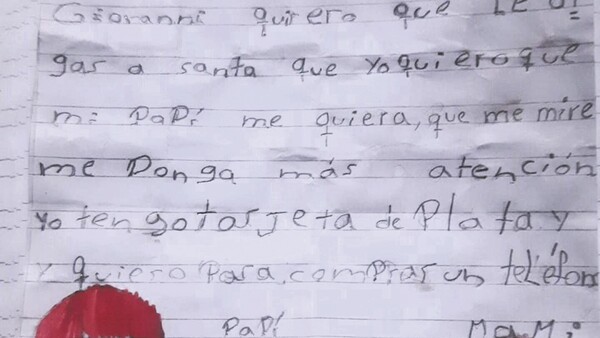 Giovanni quiero que LE di=
gas a santa que yo quiero que
mi PaPí me quiera, que me mire
me Ponga más atención
yo tengo tarjeta de Plata y
y quiero Para comprar un teléfono
PaPí MaMi